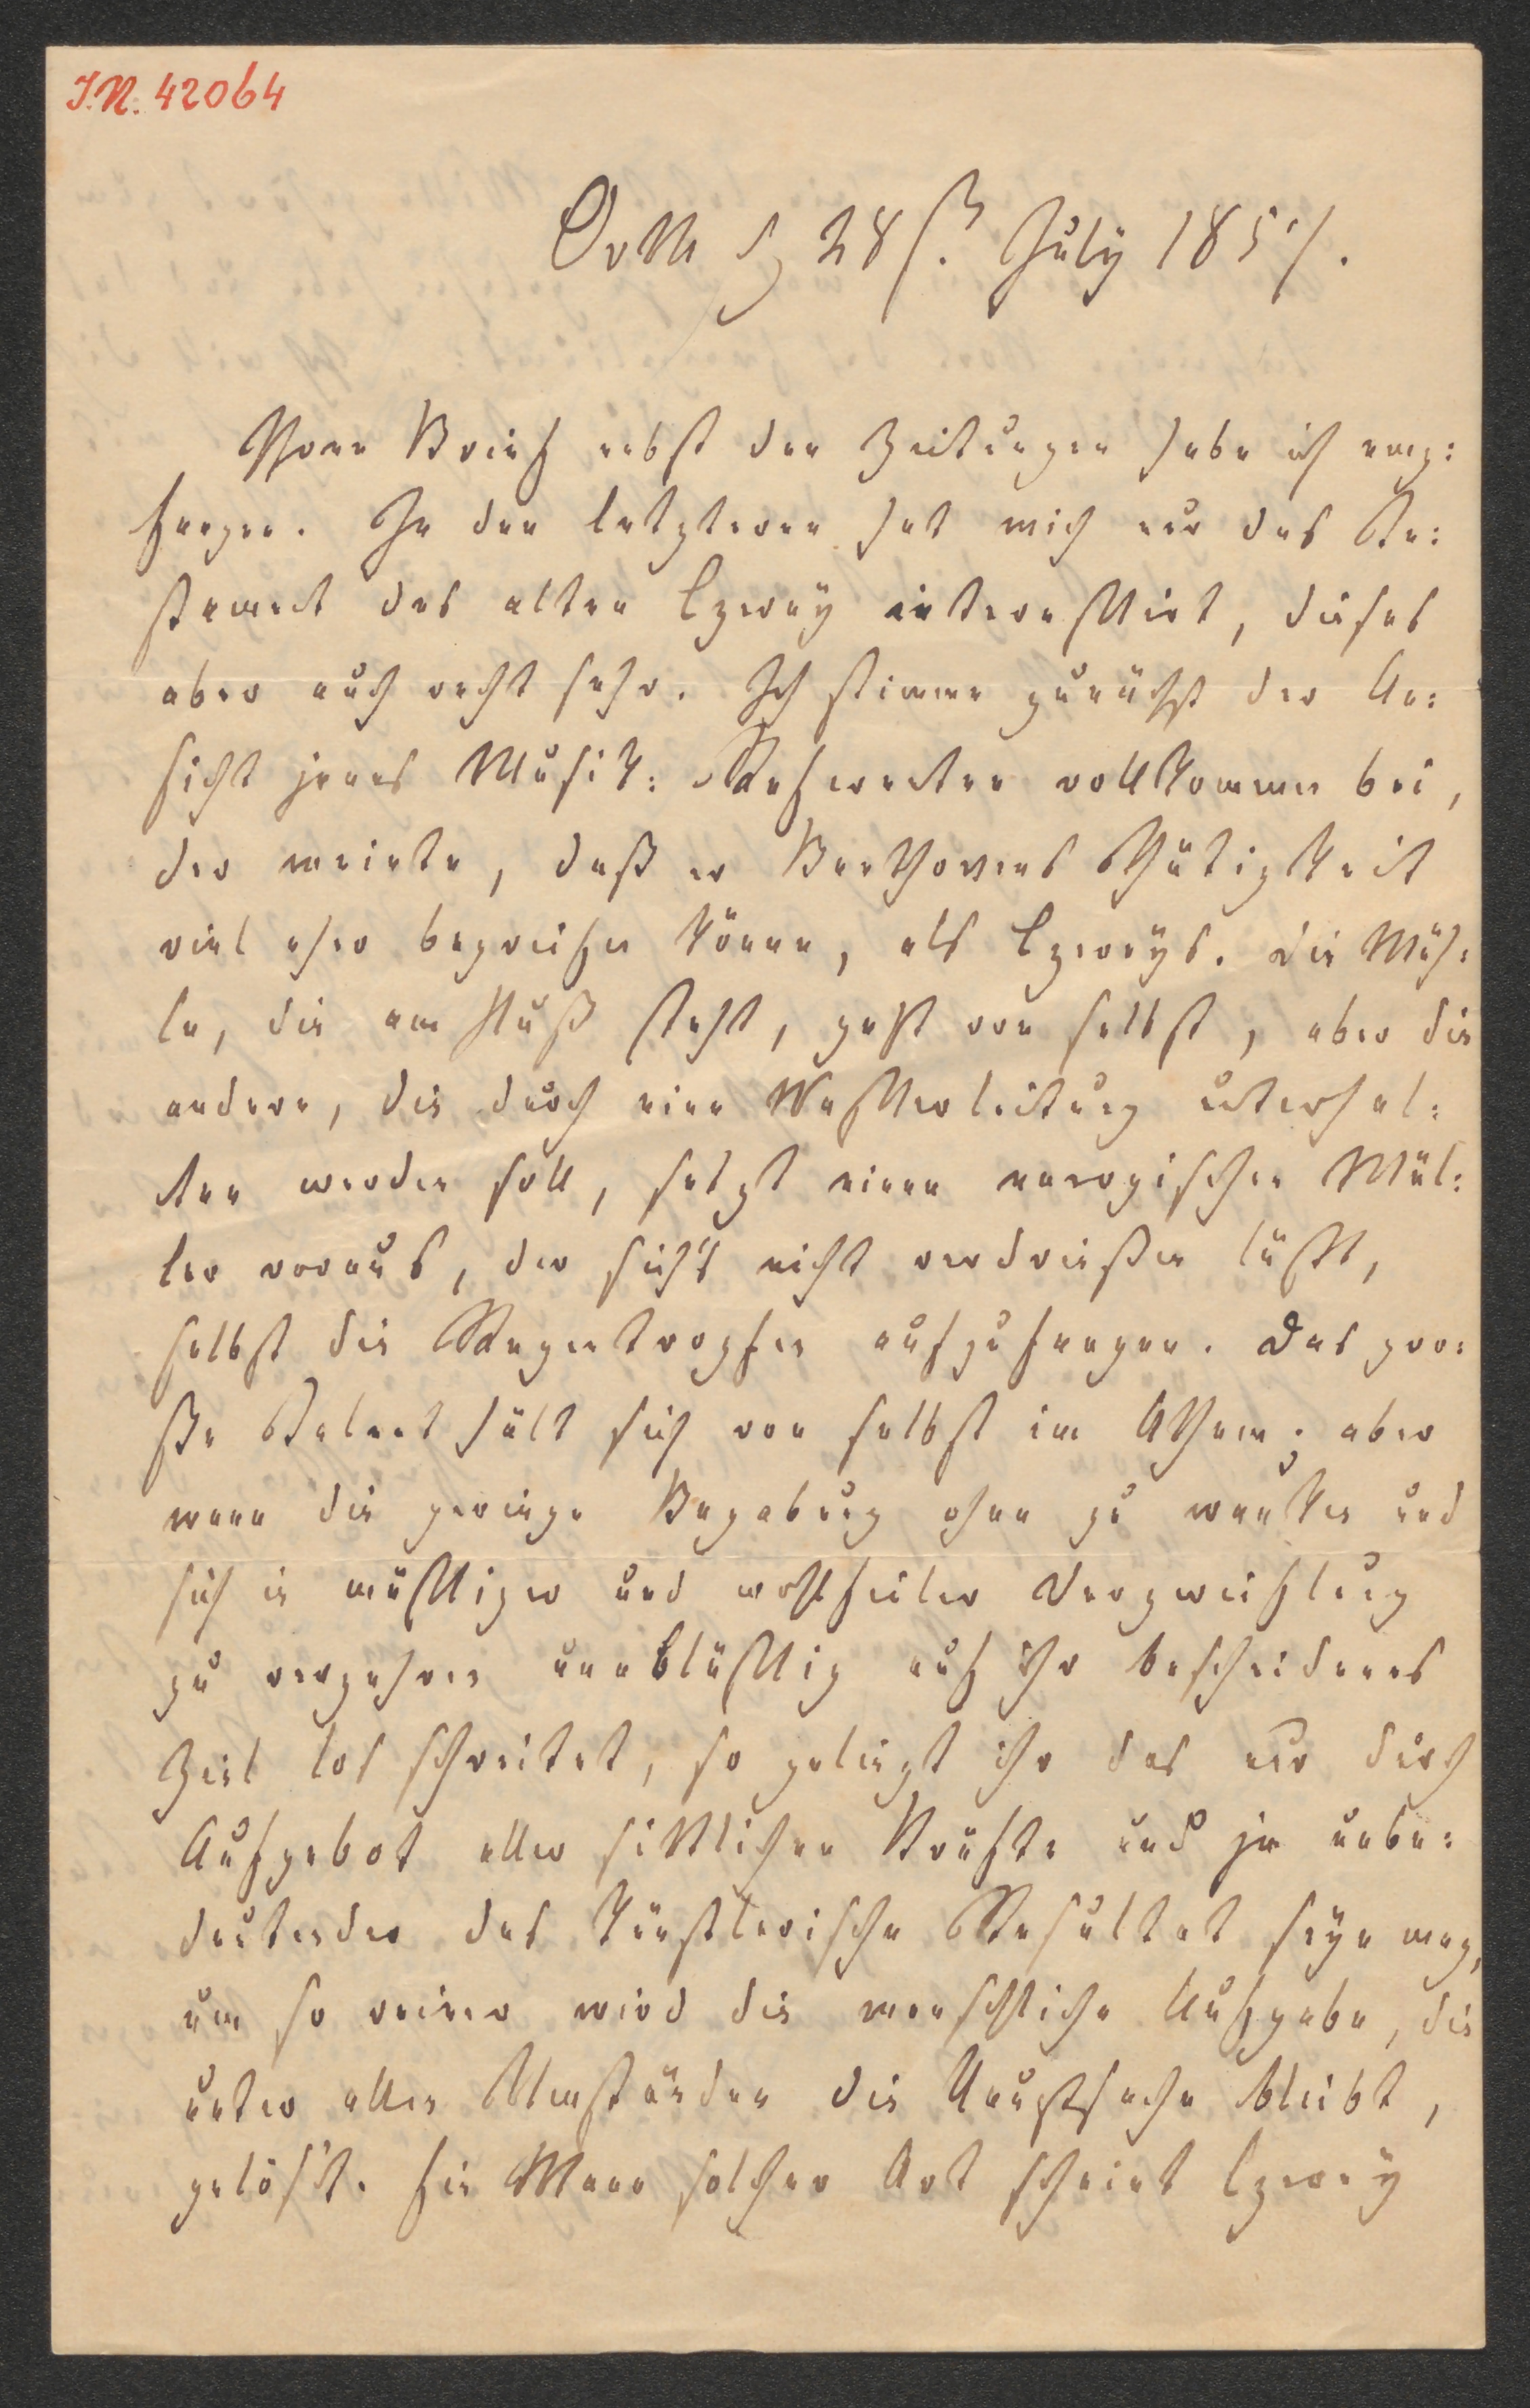 I.N. 42064
Orth d 28st. July 1857.
Ihren Brief nebst den Zeitungen habe ich emp:
fangen. In den letzteren hat mich nur das Te:
stament des alten Czerny interessirt, dieses
aber auch recht sehr. Ich stimme zunächst der An:
sicht jenes Musik-Referenten vollkommen bei,
der meinte, daß er Beethovens Thätigkeit
viel eher begreifen könne, als Czernys. Die Müh:
le, die am Fluß steht, geht von selbst, aber die
andere, die durch eine Wasserleitung unterhal:
ten werden soll, setzt einen energischen Mül:
ler voraus, der sich's nicht verdrießen läßt,
selbst die Regentropfen aufzufangen. Das gro:
ße Talent hält sich von selbst im Athem; aber
wenn die geringe Begabung ohne zu wanken und
sich in müssiger und wohlfeiler Verzweiflung
zu verzehren unabläßig auf ihr bescheidenes
Ziel los schreitet, so gelingt ihr das nur durch
Aufgebot aller sittlichen Kräfte und je unbe:
deutender das künstlerische Resultat seyn mag,
um so reiner wird die menschliche Aufgabe, die
unter allen Umständen die Hauptsache bleibt,
gelös't. Ein Mann solcher Art scheint Czerny